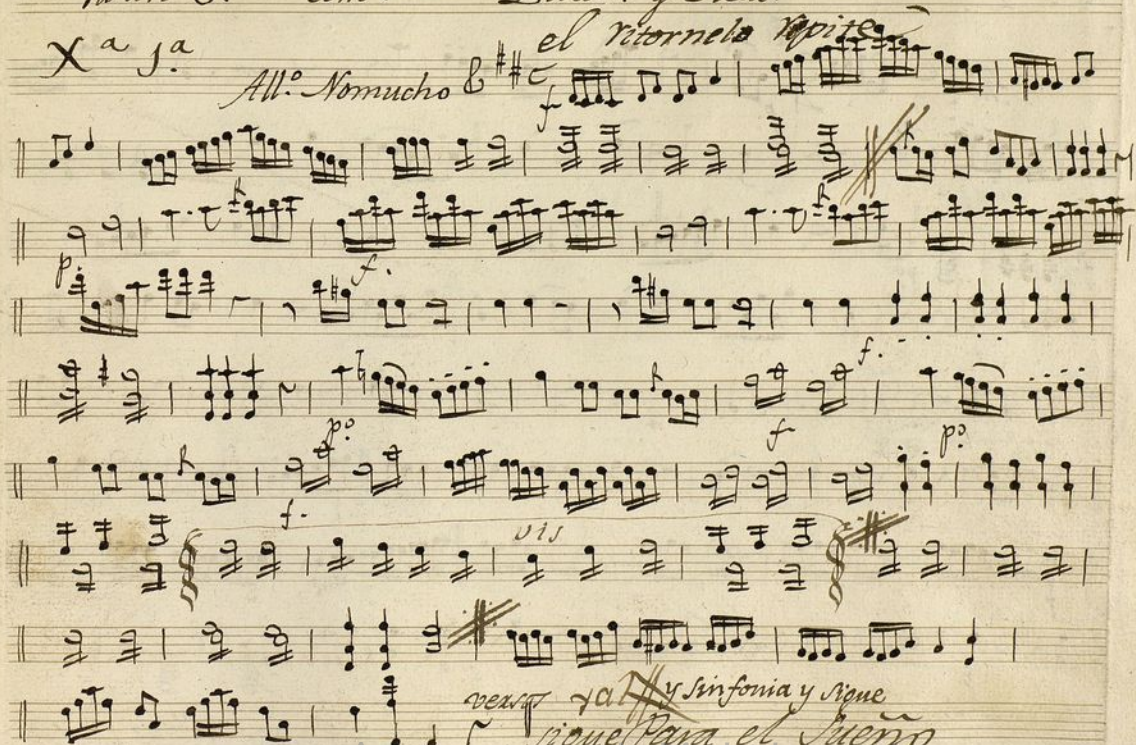 el ritornelo repite
Xª 1ª
All.º Nomucho
f
p. f.
f.
pº f pº
f.
vis
versos y al y sinfonia y sigue
sigue Para el Sueño